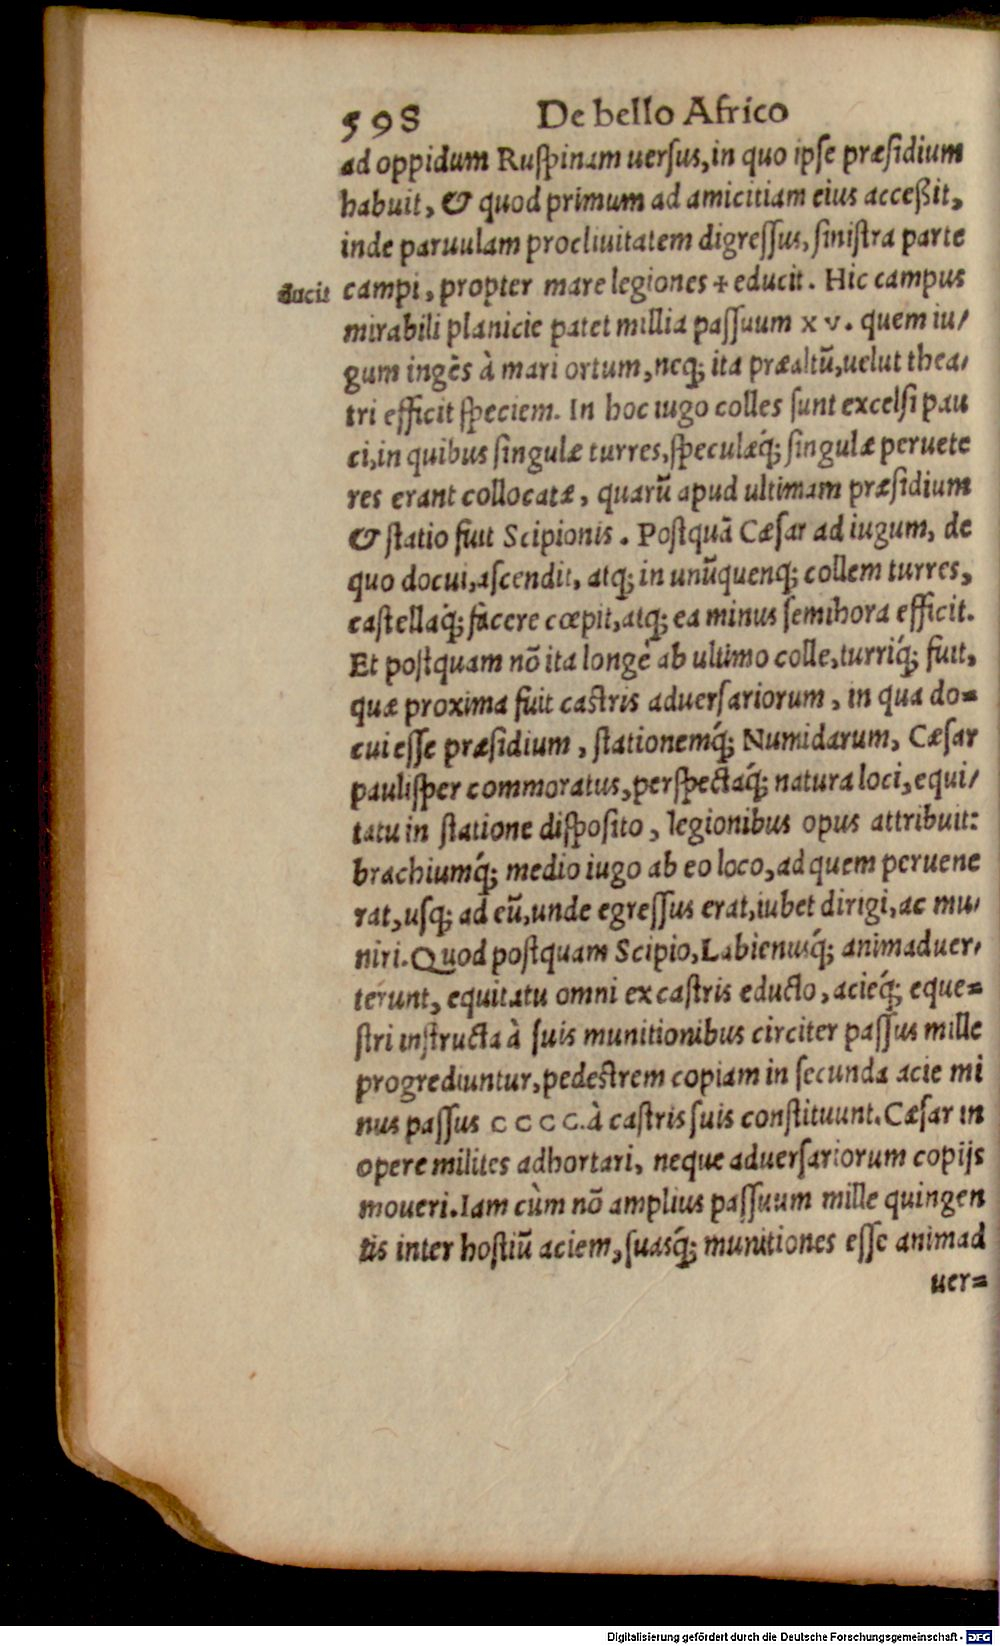 598 De bello Africo
ad oppidum Ruſpinam uerſus, in quo ipſe præſidium
habuit, & quod primum ad amicitiam eius acceßit,
inde paruulam procliuitatem digreſſus, ſiniſtra parte
ducit campi, propter mare legiones + educit. Hic campus
mirabili planicie patet millia paſſuum xv. quem iu/
gum ingẽs à mari ortum, neq; ita præaltũ, uelut thea/
tri efficit ſpeciem. In hoc iugo colles ſunt excelſi pau
ci, in quibus ſingulæ turres, ſpeculæq́; ſingulæ peruete
res erant collocatæ, quarũ apud ultimam præſidium
& ſtatio fuit Scipionis. Poſtquã Cæſar ad iugum, de
quo docui, aſcendit, atq; in unũquenq; collem turres,
caſtellaq́; facere cœpit, atq; ea minus ſemihora efficit.
Et poſtquam nõ ita longè ab ultimo colle, turriq́; fuit,
quæ proxima fuit caſtris aduerſariorum, in qua do=
cui eſſe præſidium, ſtationemq́; Numidarum, Cæſar
pauliſper commoratus, perſpectaq́; natura loci, equi/
tatu in ſtatione diſpoſito, legionibus opus attribuit:
brachiumq́; medio iugo ab eo loco, ad quem peruene
rat, uſq; ad eũ, unde egreſſus erat, iubet dirigi, ac mu/
niri. Quod poſtquam Scipio, Labienusq́; animaduer/
terunt, equitatu omni ex caſtris educto, acieq́; eque=
ſtri inſtructa à ſuis munitionibus circiter paſſus mille
progrediuntur, pedeſtrem copiam in ſecunda acie mi
nus paſſus CCCC. à caſtris ſuis conſtituunt. Cæſar in
opere milites adhortari, neque aduerſariorum copijs
moueri. Iam cùm nõ amplius paſſuum mille quingen
tis inter hoſtiũ aciem, ſuasq́; munitiones eſſe animad
uer=
Digitalisierung gefördert durch die Deutsche Forschungsgemeinschaft - DFG